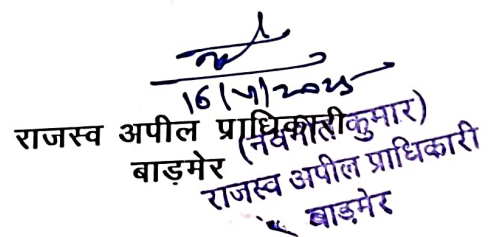 16/VI/2025
राजस्व अपील प्राधिकारी
बाड़मेर
(नवनीत कुमार)
राजस्व अपील प्राधिकारी
बाड़मेर